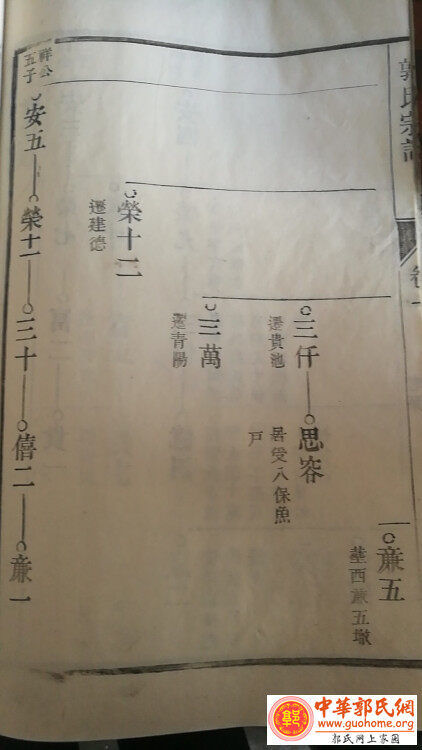 郭氏宗譜
卷一
廉五
塟西廉五墩
三仟 思容
遷貴池
受八保魚
戶
三萬
遷青陽
榮十二
遷建德
祥公
五子
安五 榮十一 三十 僖二 廉一
中華郭氏網
www.guohome.org
郭氏网上家园